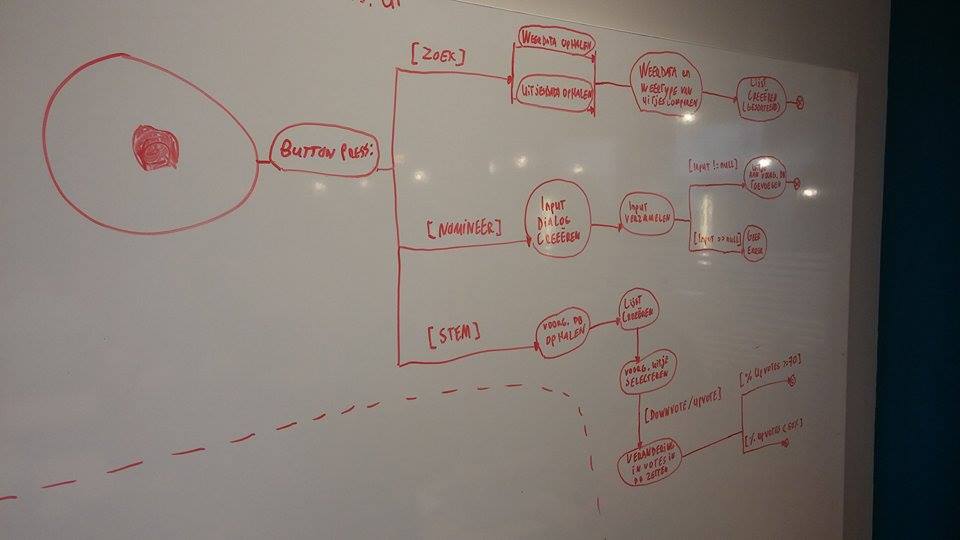 UI
[ZOEK]
WEERDATA OPHALEN
UITJESDATA OPHALEN
WEERDATA en
WEERTYPE VAN
UITJES COMPAREN
LIJST
CREËREN
(GESORTEERD)
BUTTON PRESS:
[NOMINEER]
INPUT
DIALOG
CREËREN
INPUT
VERZAMELEN
[Input != null]
AAN VOORG. DB
TOEVOEGEN
[Input == null]
GEEF
ERROR
[STEM]
VOORG. DB
OPHALEN
LIJST
CREËREN
VOORG. UITJE
SELECTEREN
[DOWNVOTE/UPVOTE]
VERANDERING
IN VOTES IN
DB ZETTEN
[% UPVOTES >=70]
[% UPVOTES < 50%]